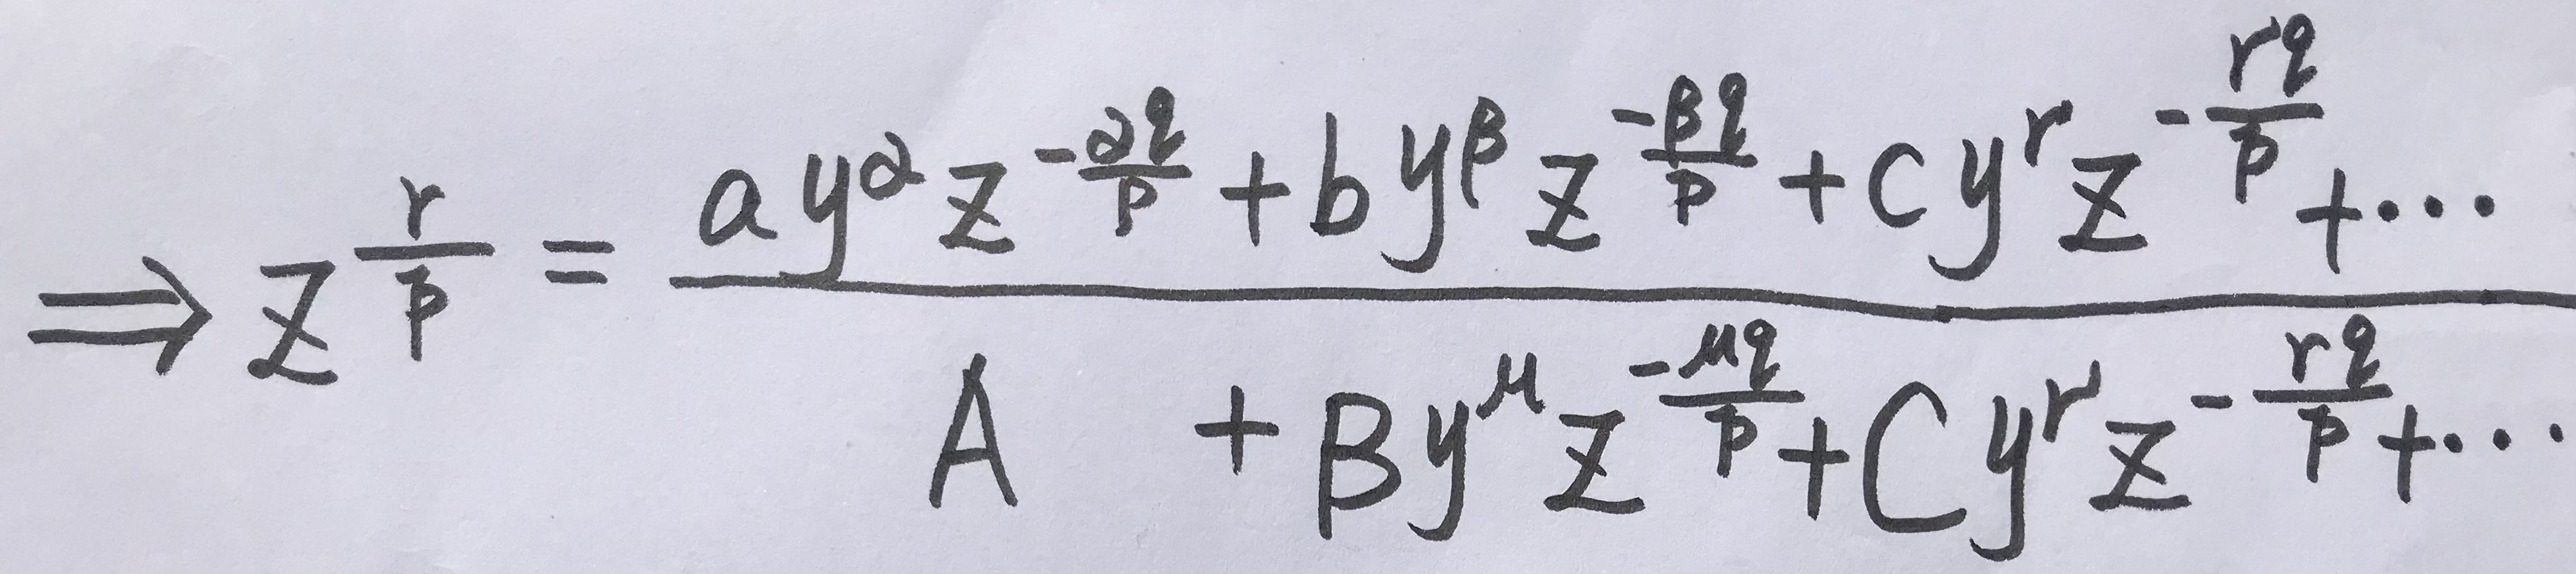 $\Rightarrow z^{\frac{r}{p}} = \frac{a y^{\alpha} z^{-\frac{\alpha q}{p}} + b y^{\beta} z^{-\frac{\beta q}{p}} + c y^{r} z^{-\frac{r q}{p}} + \cdots}{A + B y^{\mu} z^{-\frac{\mu q}{p}} + C y^{r} z^{-\frac{r q}{p}} + \cdots}$